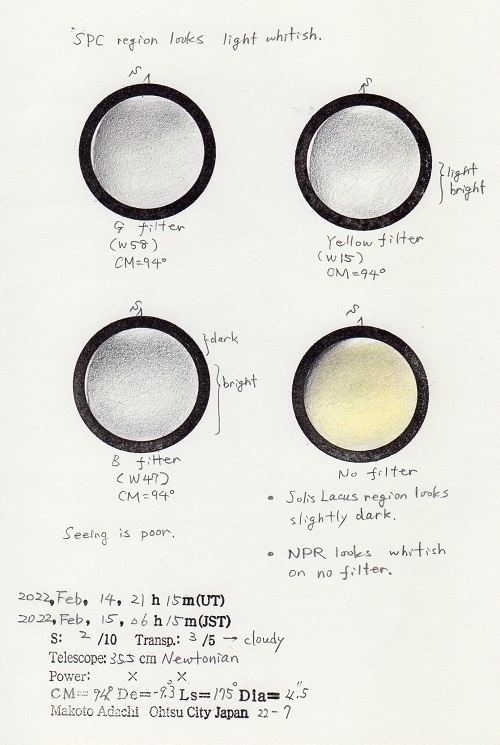 SPC region looks light whitish.
S
G filter
(W58)
CM=94°
S
light
bright
Yellow filter
(W15)
CM=94°
S
dark
bright
B filter
(W47)
CM=94°
S
No filter
• Solis Lacus region looks
slightly dark.
• NPR looks whitish
on no filter.
Seeing is poor.
2022, Feb, 14, 21 h 15 m(UT)
2022, Feb, 15, 06 h 15 m(JST)
S: 2 /10 Transp.: 3 /5 → cloudy
Telescope: 355 cm Newtonian
Power: × ×
CM= 94° De= -9.3° Ls= 175° Dia= 4".5
Makoto Adachi Ohtsu City Japan 22-7